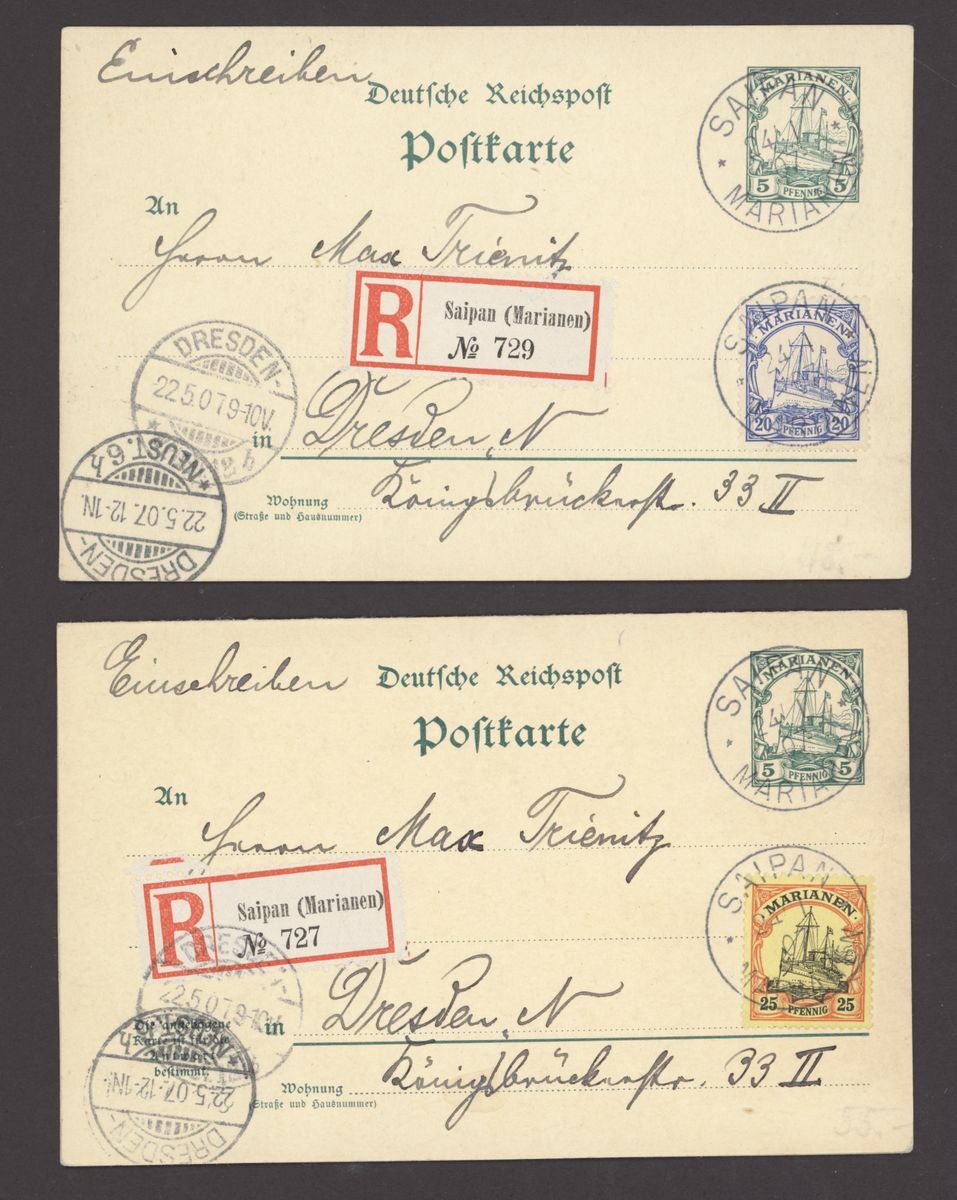 Einschreiben
Deutsche Reichspost
Postkarte
MARIANEN
5 PFENNIG 5
SAIPAN
MARIANEN
24
An
Herrn Max Trienitz
R
Saipan (Marianen)
№ 729
SAIPAN
24
MARIANEN
20 PFENNIG 20
DRESDEN-
22.5.07.9-10V.
in Dresden, N
NEUST. 6
22.5.07. 12-1N.
DRESDEN-
Wohnung
(Straße und Hausnummer)
Königsbrückerstr. 33 II
Einschreiben
Deutsche Reichspost
Postkarte
MARIANEN
5 PFENNIG 5
SAIPAN
An
Herrn Max Trienitz
R
Saipan (Marianen)
№ 727
SAIPAN
MARIANEN
25 PFENNIG 25
DRESDEN-
22.5.07.9-10V.
in Dresden, N
Die angebogene
Karte ist für die
Antwort
bestimmt.
22.5.07. 12-1N.
DRESDEN-
Wohnung
(Straße und Hausnummer)
Königsbrückerstr. 33 II